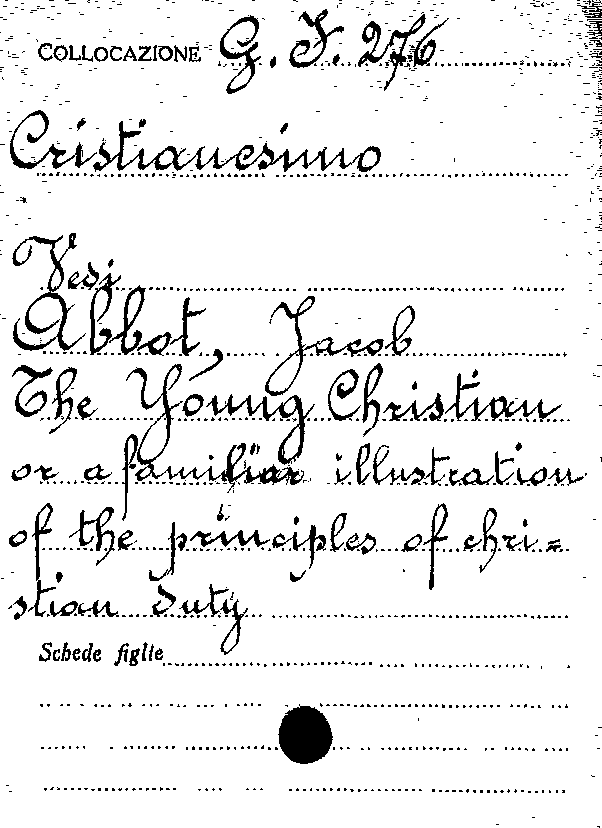 COLLOCAZIONE G. F. 276
Cristianesimo
Vedi
Abbot, Jacob
The Young Christian
or a familiar illustration
of the principles of chri=
stian duty
Schede figlie